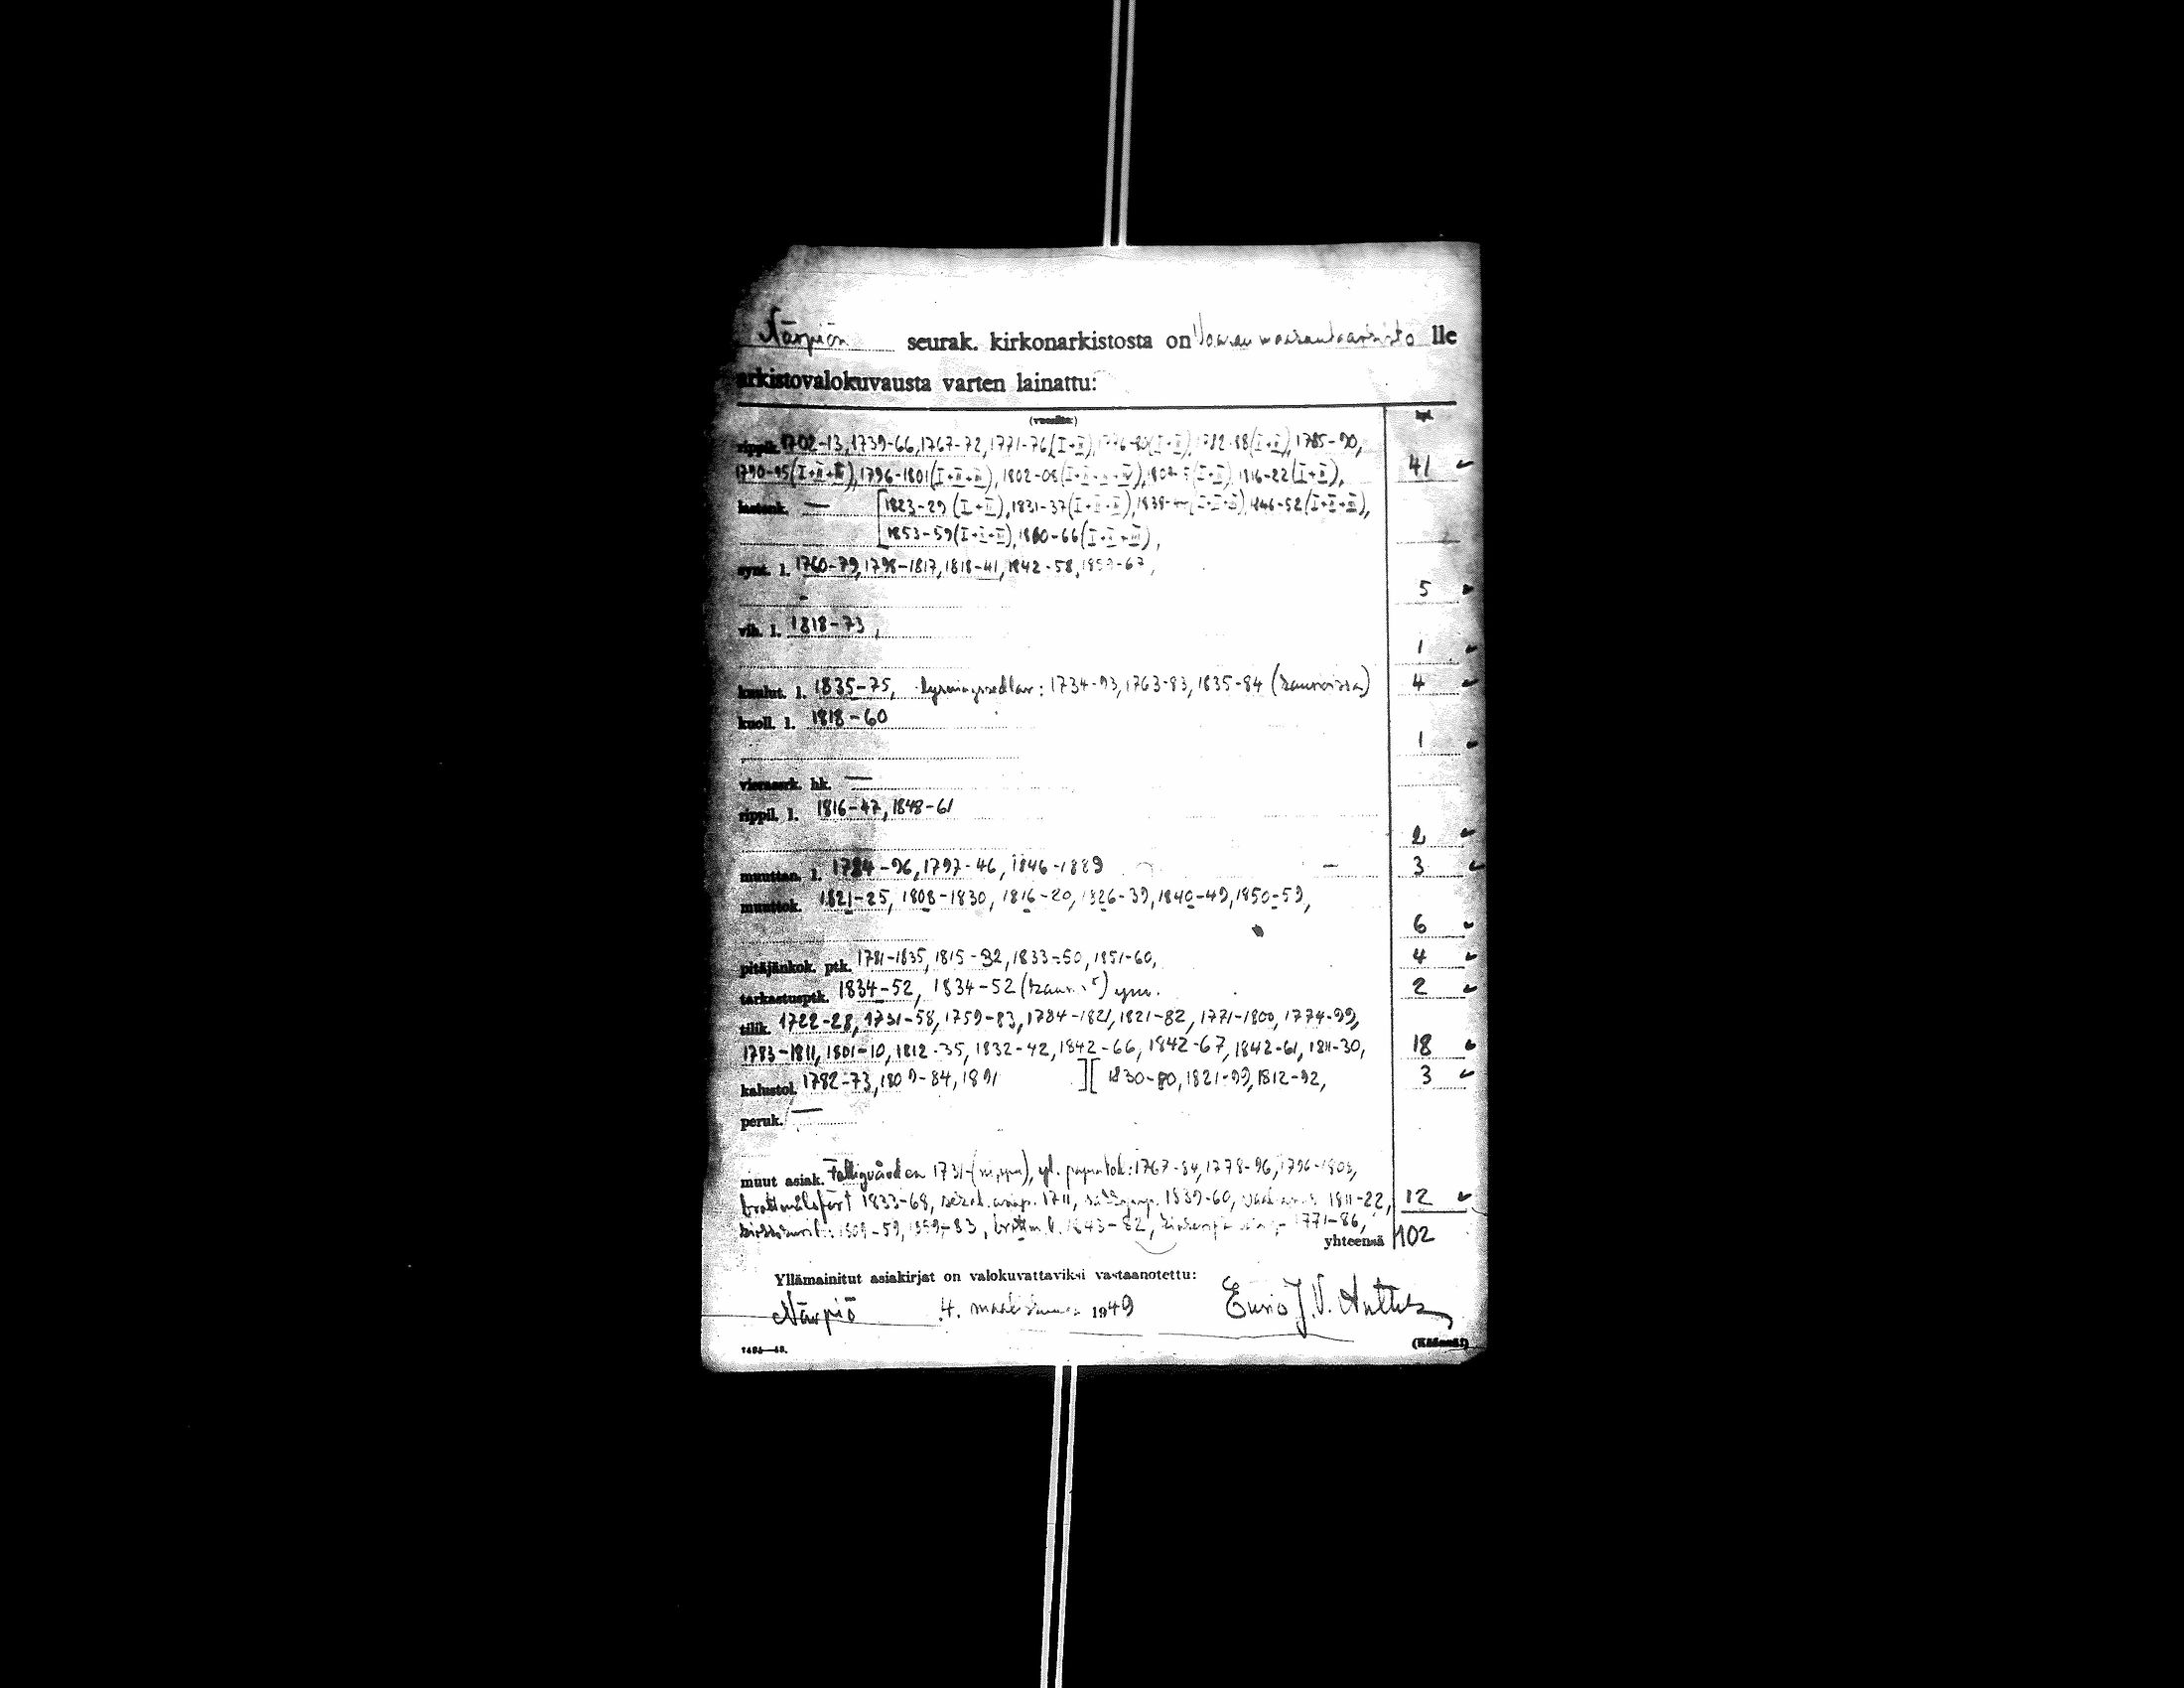 Närpiön seurak. kirkonarkistosta on Vaasan maakuntaarkisto lle
arkistovalokuvausta varten lainattu:
(vuosilta:) kpl.
rippik. 1702-13, 1739-66, 1767-72, 1771-76 (I+II), 1776-80 (I+II), 1782-88 (I+II), 1785-90,
1790-95 (I+II+III), 1796-1801 (I+II+III), 1802-08 (I+II+III+IV), (I+II), 1816-22 (I+II), 41
lastenk. — [1823-29 (I+II), 1831-37 (I+II+III), (I+II+III), 1846-52 (I+II+III),
1853-59 (I+II+III), 1860-66 (I+II+III),
synt. l. 1760-79, 1798-1817, 1818-41, 1842-58, 1859-67,
5
vih. l. 1818-73,
1
kuulut. l. 1835-75, lysningssedlar: 1734-93, 1763-83, 1835-84 (kansioissa) 4
kuoll. l. 1818-60
1
vierassrk. hk. —
rippil. l. 1816-47, 1848-61
2
muuttan. l. 1784-96, 1797-46, 1846-1889 3
muuttok. 1821-25, 1808-1830, 1816-20, 1826-39, 1840-49, 1850-59,
6
pitäjänkok. ptk. 1781-1835, 1815-92, 1833-50, 1851-60, 4
tarkastusptk. 1834-52, 1834-52 ym. 2
tilik. 1722-28, 1731-58, 1759-83, 1784-1821, 1821-82, 1771-1800, 1774-99,
1783-1811, 1801-10, 1812-35, 1832-42, 1842-66, 1842-67, 1842-61, 1811-30, 18
kalustol. 1782-73, 1809-84, 1891 ][ 1830-80, 1821-99, 1812-92, 3
peruk. —
muut asiak. Fattigvården 1731- 1767-84, 1778-96, 1796-1803,
1833-68, 1711, 1839-60, 1811-22, 12
1809-59, 1859-83, 1843-82, 1771-86,
yhteensä 102
Yllämainitut asiakirjat on valokuvattaviksi vastaanotettu:
Närpiö 4. maaliskuuta 1949 J. V.
(Käännä!)